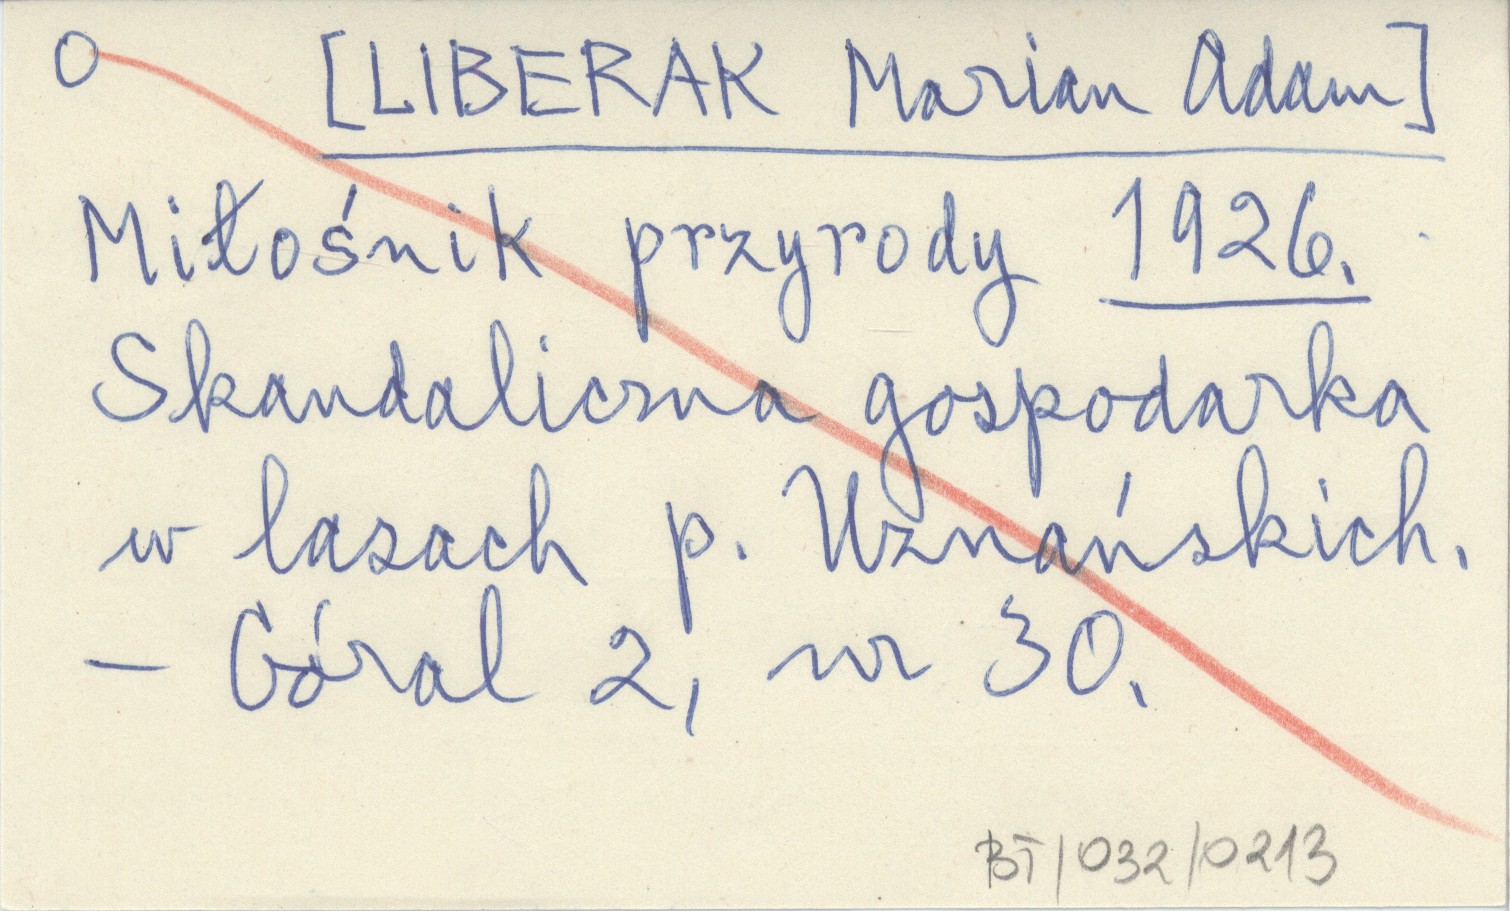 O [LIBERAK Marian Adam]
Miłośnik przyrody 1926.
Skandaliczna gospodarka
w lasach p. Uznańskich.
– Góral 2, nr 30.
BT/032/0213